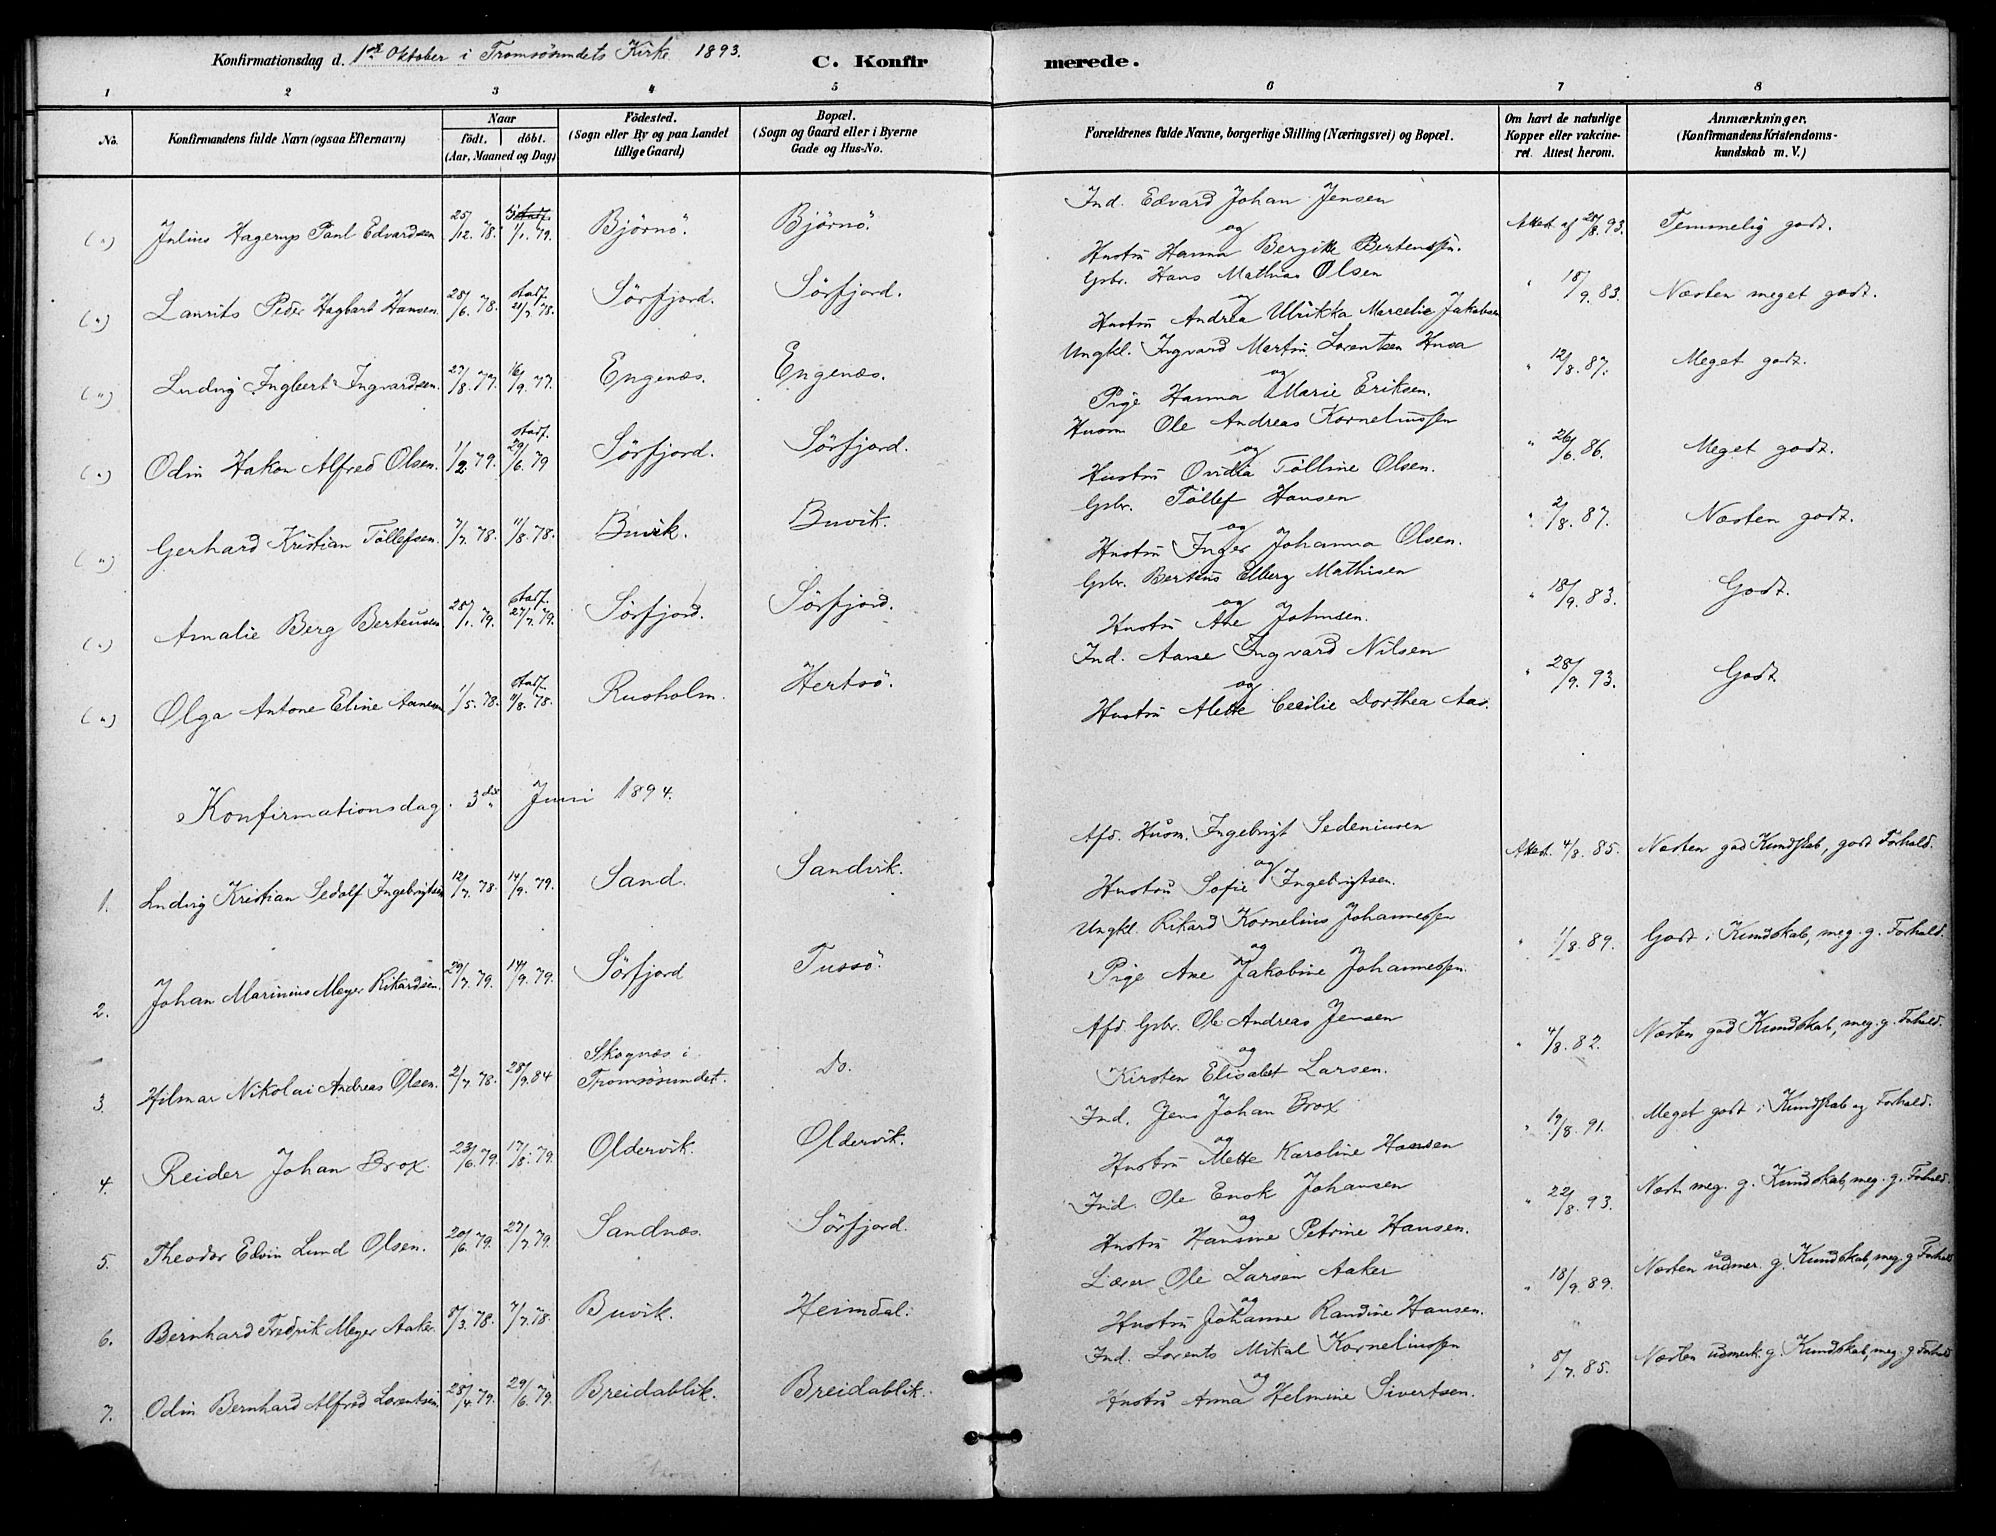 Konfirmationsdag d. 1ste Oktober i Tromsösundets Kirke 1893. C. Konfir merede.
1 2 3 4 5 6 7 8
No. Konfirmandens fulde Navn (ogsaa Efternavn) Naar födt. döbt. (Aar, Maaned og Dag) Födested. (Sogn eller By og paa Landet tillige Gaard) Bopæl. (Sogn og Gaard eller i Byerne Gade og Hus-No. Forældrenes fulde Navne, borgerlige Stilling (Næringsvei) og Bopæl. Om havt de naturlige Kopper eller vakcineret. Attest herom. Anmærkninger. (Konfirmandens Kristendomskundskab m. V.)
Ind. Edvard Johan Jensen
(") Julius Hagerup Paul Edvardsen 25/12.78. 1/1.79. Björnö. Björnö. og Attest af 28/8.93. Temmelig godt.
Hustru Hanna Bergitte Bertenssen.
Gbr. Hans Mathias Olsen
(") Laurits Peder Hagbart Hansen. 28/6.78. stadf. 21/7.78. Sörfjord. Sörfjord. og " 18/9.83. Næsten meget godt.
Hustru Andrea Ulrikka Marcelie Jakobsen
Ungkl. Ingvard Martin Lorentsen Husa
(") Ludvig Ingbert Ingvardsen. 27/8.77. 16/9.77. Engenæs. Engenæs. og " 12/8.87. Meget godt.
Pige Hanna Marie Eriksen.
Husm Ole Andreas Korneliussen
(") Odin Hakon Alfred Olsen. 1/2.79. stadf. 29/6.79 Sörfjord. Sörfjord. og " 26/6.86. Meget godt.
Hustru Ovidia Tölline Olsen.
Gbr. Töllef Hansen
(") Gerhard Kristian Töllefsen. 7/7.78. 11/8.78. Buvik. Buvik. og " 2/8.87. Næsten godt.
Hustru Inger Johanna Olsen.
Gbr. Berteus Elberg Mathisen
(") Amalie Berg Berteussen 28/1.79. stadf. 27/7.79. Sörfjord. Sörfjord. og " 18/9.83. Godt.
Hustru Ane Johnsen.
Ind. Aane Ingvard Nilsen
(") Olga Antone Eline Aanesen 1/5.78. stadf. 11/8.78. Rusholm. Hertsö. og " 28/9.93. Godt
Hustru Alette Cecilie Dorthea Aas.
Konfirmationsdag. 3die Juni 1894.
Afd. Husm. Ingebrigt Sedeniusen
1. Ludvig Kristian Sedolf Ingebrigtsen 12/7.78. 14/9.79. Sand. Sandvik. og Attest. 4/8.85. Næsten god Kundskab, godt Forhold.
Hustru Sofie Ingebrigtsen.
Ungkl. Rikard Kornelius Johannessen
2. Johan Marinius Meyer Rikardsen. 29/7.79. 14/9.79. Sörfjord Tussö. og " 1/8.89. Godt i Kundskab, meg. g. Forhold.
Pige Ane Jakobine Johannessen.
Afd. Gbr. Ole Andreas Jensen
3. Hilmar Nikolai Andreas Olsen. 2/7.78. 28/9.84 Skognæs i Tromsösundet. Do. og " 4/8.82. Næsten god Kundskab, meg. g. Fohold.
Kirsten Elisabet Larsen.
Ind. Jens Johan Brox
4. Reider Johan Brox. 23/6.79. 17/8.79. Oldervik. Oldervik. og " 19/8.91. Meget godt i Kundskab og Forhold.
Hustru Mette Karoline Hansen
Ind. Ole Enok Johansen
5. Theodor Edvin Lund Olsen. 20/6.79. 27/7.79. Sandnæs. Sörfjord. og " 22/8.93. Næst. meg. g. Kundskab, meg. g. Forhold.
Hustru Hansine Petrine Hansen.
Lærer Ole Larsen Aaker
6. Bernhard Fredrik Meyer Aaker. 8/3.78. 7/7.78. Buvik. Heimdal. og " 18/9.89. Næsten udmer. g. Kundskab, meg. g Forhold
Hustru Johanne Randine Hansen.
Ind. Lorents Mikal Korneliussen
7. Odin Bernhard Alfred Lorentsen. 28/4.79. 29/6.79. Breidablik. Breidablik. og " 8/7.85. Næsten udmerk. g. Kundskab, meg. g Forhold
Hustru Anna Helmine Sivertsen.